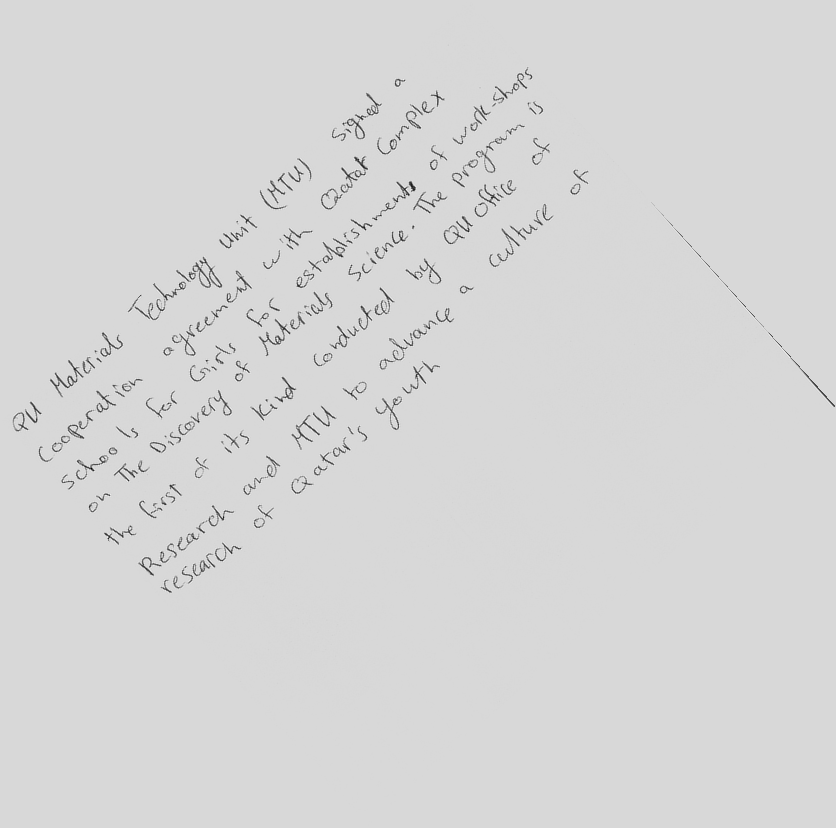 QU Materials Technology Unit (MTU) signed a
Cooperation agreement with Qatar Complex
schools for Girls for establishments of work-shops
on The Discovery of Materials Science. The program is
the first of its Kind conducted by QU Office of
Research and MTU to advance a culture of
research of Qatar's youth